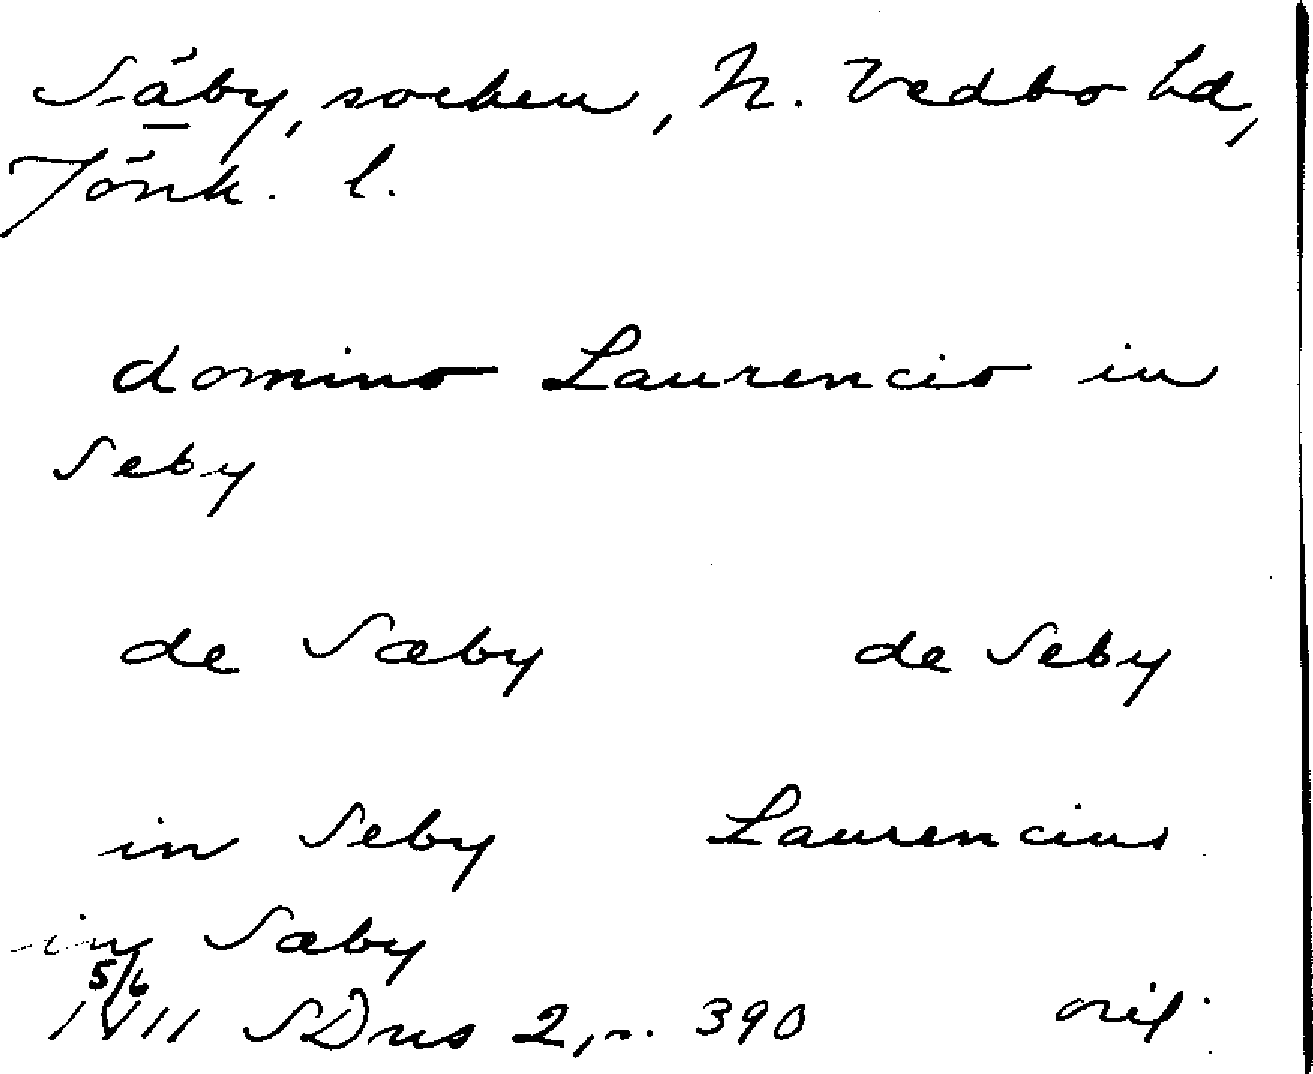 Säby, socken, N. Vedbo hd,
Jönk. l.
domino Laurencio in
Seby
de Sæby de Seby
in Seby Laurencius
in Sæby
5/6
1411 SDns 2, s. 390 orig.